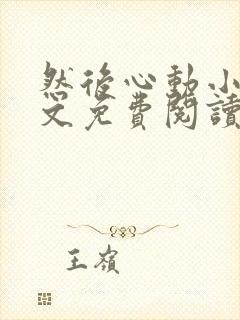 然後心動小
文免費閱讀
王嶺